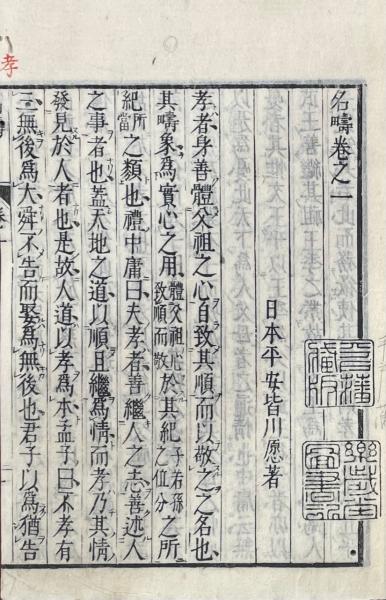 名疇卷之一
日本平安皆川愿著
孝者身善體父祖之心自致其順而以敬之之名也
其疇象爲實心之用體父祖心致順而敬於其紀子若孫之位分之所
紀所當之類也禮中庸曰夫孝者善繼人之志善述人
之事者也蓋天地之道以順且繼爲情而孝乃其情
發見於人者也是故人道以孝爲本孟子曰不孝有
三無後爲大舜不告而娶爲無後也君子以爲猶告
孝